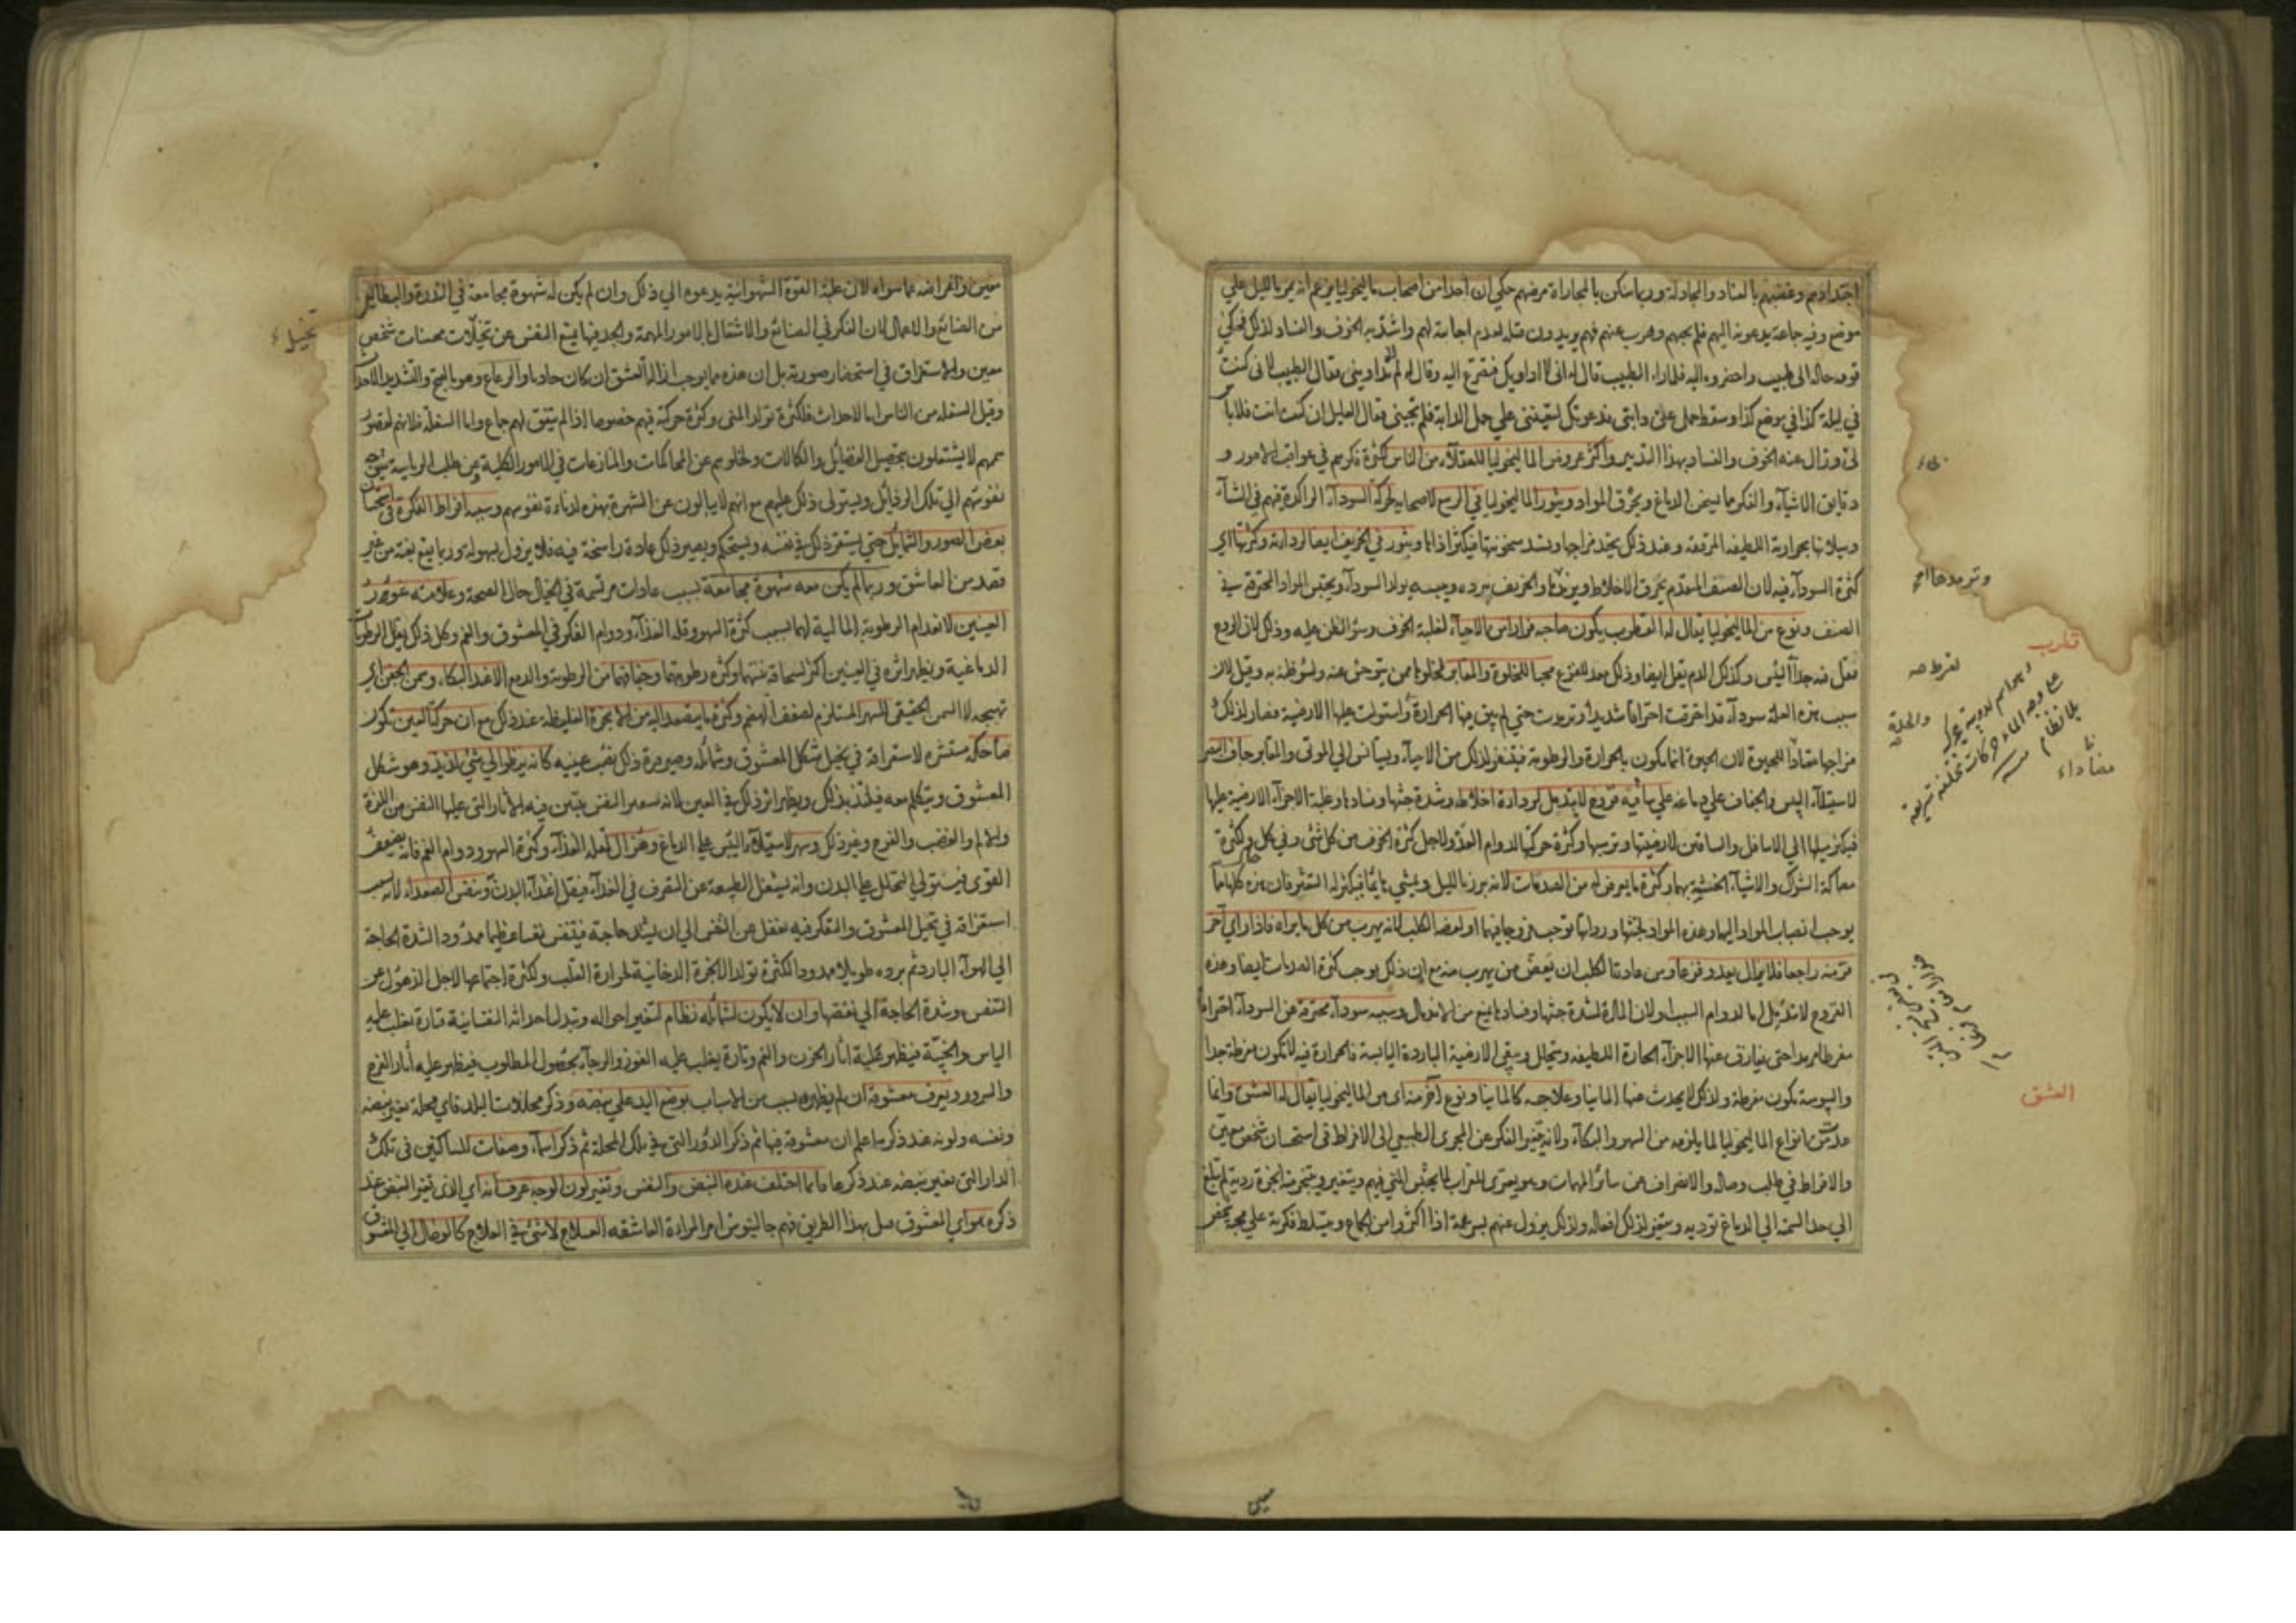 احتدادهم وغضبهم بالعناد والمجادلة وربما سكن بالمجاراة مرضهم حكي ان احدا من اصحاب ماليخوليا يزعم انه يمر بالليل علي
موضع وفيه جماعة يدعونه اليهم فلم يجبهم وهرب عنهم فهم يريدون قتله لعدم اجابته لهم واشتد به الخوف والفساد لذلك فحكي
قومه حاله الى طبيب واحضروه اليه فلما راه الطبيب قال له انى لا اداويك فتضرع اليه وقال له لم لا تداوينى فقال الطبيب لانى كنت
في ليلة كذا في موضع كذا وسقط حمل علىّ دابتى فدعوتك لتعيننى علي حمل الدابة فلم تجبنى فقال العليل ان كنت انت فلا بأس
لى وزال عنه الخوف والفساد بهذا التدبير واكثر عروض الماليخوليا للعقلاء من الناس لكثرة فكرهم في عواقب الامور و
دقايق الاشياء والفكر مما يسخن الدماغ ويحرق المواد ويثور الماليخوليا في الربيع لاصحابه لحركة السوداء الراكدة فيهم في الشتاء
وسيلانها بحرارته اللطيفه المرققه وعند ذلك يحتد مزاجها وتشتد سخونتها فيكثر اذاها ويثور في الخريف ايضا لرداءته وكثرتها اي
كثرة السوداء فيه لان الصيف المتقدم يحرق الاخلاط ويرمدها والخريف ببرده ويبسه يولد السوداء ويحتبس المواد المحترقة في
الصيف ونوع من الماليخوليا يقال له القطرب يكون صاحبه فرارا من الاحياء لغلبة الخوف وسوء الظن عليه وذلك لان الروح
تقل فيه جدا لليبس وكذلك الدم يقل ايضا وذلك معد للفزع محبا للخلوة والمقابر لخلوها ممن يتوحش عنه ولسوء ظنه به وقيل لان
سبب هذه العلة سوداء قد احترقت احتراقا شديدا وترمدت حتي لم يبق فيها الحرارة واستولت عليها الارضية فصار لذلك
مزاجها مضادا للحيوة لان الحيوة انما تكون بالحرارة والرطوبة فيتنفر لذلك من الاحياء ويستانس الي الموتى والمقابر جاف البصر
لاستيلاء اليبس والجفاف علي دماغه علي ساقيه قروح لا يندمل لرداءة اخلاطه وشدة خبثها وفسادها وغلبة الاجزاء الارضية عليها
فيكثر ميلها الي الاسافل والساقين لارضيتها وترسبها وكثرة حركتها لدوام العدو ولاجل كثرة الخوف من كل شئ وفي كل حال ولكثرة
مصاكة الشوك والاشياء الخشنة بهما وكثرة ما يعرض له من الصدمات لانه يبرز بالليل ويمشي هائما فيكثر له التعثر فان هذه كلها مما
يوجب انصباب المواد اليهما وهذه المواد لخبثها ورداءتها توجب تقرح ما فيهما او لعض الكلب لانه يهرب من كل ما يراه فاذا راي آخر
فر منه راجعا فلا يزال يعدو فزعا ومن عادة الكلب ان يعض من يهرب منه مع ان ذلك يوجب كثرة الصدمات ايضا وهذه
القروح لا تندمل اما لدوام السبب او لان المادة لشدة خبثها وفسادها يمنع من الاندمال وسببه سوداء محترقة عن السوداء احتراقا
مفرطا بردا حتى يفارق عنها الاجزاء الحارة اللطيفة ويتحلل ويبقى الارضية الباردة اليابسة فالحرارة فيه لا تكون مفرطة جدا
واليبوسة تكون مفرطة ولذلك لا يحدث عنها المانيا وعلاجه كالمانيا ونوع آخر منه اى من الماليخوليا يقال له العشق وانما
عد من انواع الماليخوليا لما يلزمه من السهر والبكاء ولانه تغير الفكر عن المجرى الطبيعي الى الافراط في استحسان شخص معين
والافراط في طلب وصاله والانصراف عن سائر المهمات وهو يعترى للعزاب لما يحتبس المني فيهم ويتغير ويتبخر منه ابخرة ردية لم تبلغ
الي حد السمية الي الدماغ تؤديه وستغير لذلك افعاله ولذلك يزول عنهم بسرعة اذا اكثروا من الجماع ويتسلط فكرته علي محبة شخص
وترمدها اي
قطرب
مضاداء
العشق
معين واعراضه عما سواه لان غلبة القوة الشهوانية يدعوه الي ذلك وان لم يكن له شهوة مجامعة في الندرة والبطالين
من الصنائع والاعمال لان الفكر في الصنائع والاشتغال بالامور المهمة والجد فيها يمنع النفس عن تخيلات محسنات شخص
معين والاستغراق في استحضار صورته بل ان هذه مما يوجب ازالة العشق ان كان حادثا والرعاع وهو بالفتح والتشديد الاحداث
وقيل السفلة من الناس اما الاحداث فلكثرة تولد المنى وكثرة حركته فيهم خصوصا اذا لم يتفق لهم جماع واما السفلة فلانهم لقصور
هممهم لا يشتغلون بتحصيل الفضائل والكمالات ولخلوهم عن المحاكمات والمنازعات في الامور الكلية وعن طلب الرياسة يتوجه
نفوسهم الي تلك الرذائل ويستولي ذلك عليهم مع انهم لا يبالون عن الشهرة بهذه لدناءة نفوسهم وسببه افراط الفكرة في استحسان
بعض الصور والشمائل حتي يستقر ذلك في نفسه ويستحكم ويصير ذلك عادة راسخة فيه فلا يزول بسهولة وربما يقع بغتة من غير
قصد من العاشق وربما لم يكن معه شهوة مجامعة بسبب عادات مرتسمة في الخيال حال الصحة وعلامته غؤور
العينين لانعدام الرطوبة المالية لهما بسبب كثرة السهر وقلة الغذاء ودوام الفكر في المعشوق والغم وكل ذلك يقلل الرطوبات
الدماغية ويظهر اثره في العينين اكثر لسخافة بنيتهما وكثرة رطوبتهما وجفافهما من الرطوبة والدمع الا عند البكاء وسمن الجفن اي
تهيجه لا السمن الحقيقى للسهر المستلزم لضعف الهضم وكثرة ما يتصعد اليه من الابخرة الغليظة عند ذلك مع ان حركة العين تكون
ضاحكة مستشره لاستغراقه في تخيل شكل المعشوق وشمائله وصيرورة ذلك نصب عينيه كانه ينظر الي شئ لذيذ وهو شكل
المعشوق ويتكلم معه فيلتذ بذلك ويظهر اثر ذلك في العين لانه سفير النفس يتبين فيه الآثار التي عليها النفس من اللذة
والالم والغضب والفرح وغير ذلك وسهر لاستيلاء اليبس علي الدماغ وهزال لقلة الغذاء وكثرة السهر ودوام الغم فانه يضعف
القوى فيستولي التحلل علي البدن وانه يشغل الطبيعة عن التصرف في الغذاء فيقل اغتذاء البدن وتنفس الصعداء لانه بسبب
استغراقه في تخيل المعشوق والتفكر فيه يغفل عن التنفس الي ان يشتد حاجته فيتنفس نفسا عظيما ممدودا لشدة الحاجة
الي الهواء البارد ثم برده طويلا ممدودا لكثرة تولد الابخرة الدخانية لحرارة القلب ولكثرة اجتماعها لاجل الذهول عن
التنفس وشدة الحاجة الي نفضها وان لا يكون لشمائله نظام لتغير احواله وتبدل احداثه النفسانية فتارة يغلب عليه
الياس والخيبة فيظهر عليه آثار الحزن والغم وتارة يغلب عليه الفوز والرجاء بحصول المطلوب فيظهر عليه آثار الفرح
والسرور ويعرف معشوقه ان لم يظهره بسبب من الاسباب بوضع اليد علي نبضه وذكر محلات البلد فاي محلة تغير نبضه
ونفسه ولونه عند ذكرها علم ان معشوقه فيها ثم ذكر الدور التى في تلك المحلة ثم ذكر اسماء وصفات للساكنين فى تلك
الدار التى تغير نبضه عند ذكرها فايما اختلف عنده النبض والنفس وتغير لون الوجه عرف انه اي الذى تغير النبض عند
ذكره هو اي المعشوق بهذا الطريق فهم جالينوس امر المراة العاشقه العلاج لا شئ في العلاج كالوصال الي المعشوق
تخيل